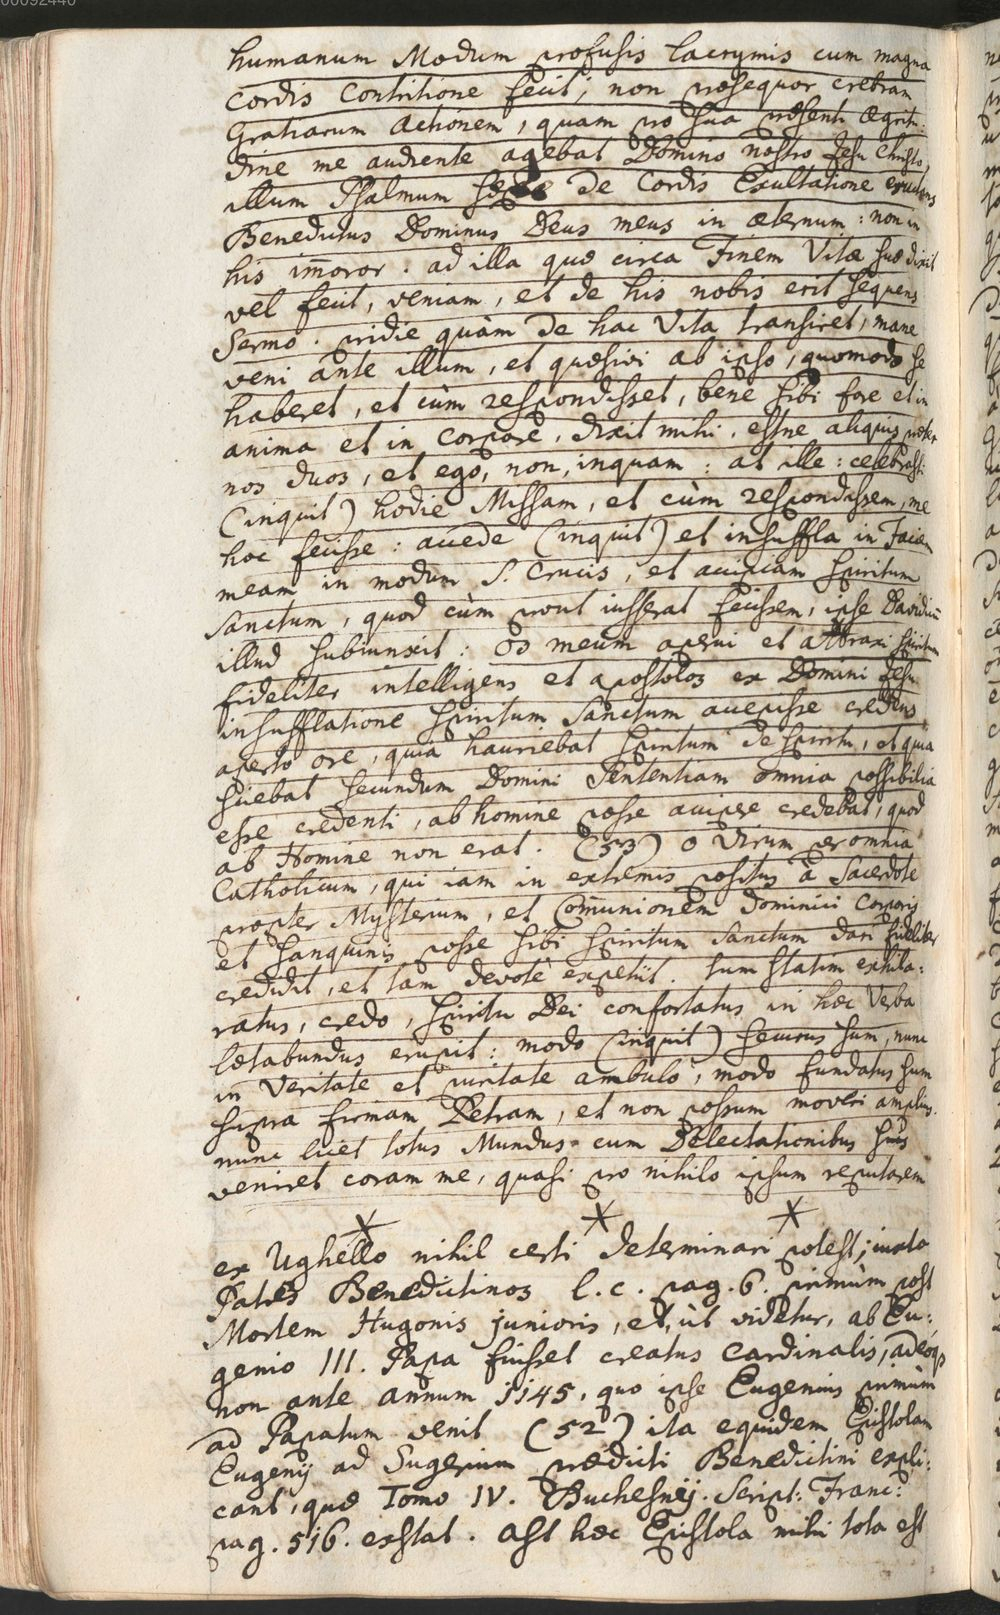 00092440
humanum Modum profusis lacrymis cum magna
Cordis Contritione fecit; non prosequor crebram
Gratiarum Actionem, quam pro sua præsenti Ægritu:
dine me audiente agebat Domino nostro Jesu Christo,
illum Psalmum sæpe de Cordis Exultatione
Benedictus Dominus Deus meus in æternum: non in
his im̄oror. ad illa quæ circa Finem Vitæ suæ dixit
vel fecit, veniam, et de his nobis erit sequens
Sermo. pridie quàm de hac Vita transiret, mane
veni ante illum, et quæsivi ab ipso, quomodo se
haberet, et cùm respondisset, bene sibi fore et in
anima et in Corpore, dixit mihi, estne aliquis præter
nos duos, et ego, non, inquam: at ille: celebrasti
(inquit) hodie Missam, et cùm respondissem, me
hoc fecisse: accede (inquit) et insuffla in Faciem
meam in modum S. Crucis, et accipiam Spiritum
Sanctum, quod cùm prout iusserat fecissem, ipse Davidicū
illud subiunxit: Os meum aperui et attraxi Spiritum
fideliter intelligens et Apostolos ex Domini Jesu
insufflatione Spiritum Sanctum accepisse credens
aperto ore, quia hauriebat Spiritum de Spiritu, et quia
sciebat secundum Domini Sententiam omnia possibilia
esse credenti, ab homine posse accipere credebat, quod
ab Homine non erat. (53) O Virum per omnia
Catholicum, qui iam in extremis positus à Sacerdote
propter Mysterium, et Com̄unionem Dominici Corporis
et Sanquinis posse sibi Spiritum Sanctum dari fideliter
credidit, et tam devotè expetiit. tum statim exhila:
ratus, credo, Spiritu Dei confortatus in hæc Verba
lætabundus erupit: modo (inquit) securus sum, nunc
in Veritate et puritate ambulo, modo fundatus sum
supra firmam Petram, et non possum moveri amplius.
nunc licet totus Mundus cum Delectationibus suis
veniret coram me, quasi pro nihilo ipsum reputarem
* * *
ex Ughello nihil certi determinari potest; iuxta
Patres Benedictinos l. c. pag. 6. primùm post
Mortem Hugonis junioris, et, ùt videtur, ab Eu:
genio III. Papa fuisset creatus Cardinalis, adeóq3
non ante annum 1145, quo ipse Eugenius primùm
ad Papatum venit (52) ita equidem Epistolam
Eugenij ad Sugerium prædicti Benedictini expli:
cant, quæ Tomo IV. Duchesnij. Script: Franc:
pag. 516. exstat. Ast hæc Epistola mihi tota est